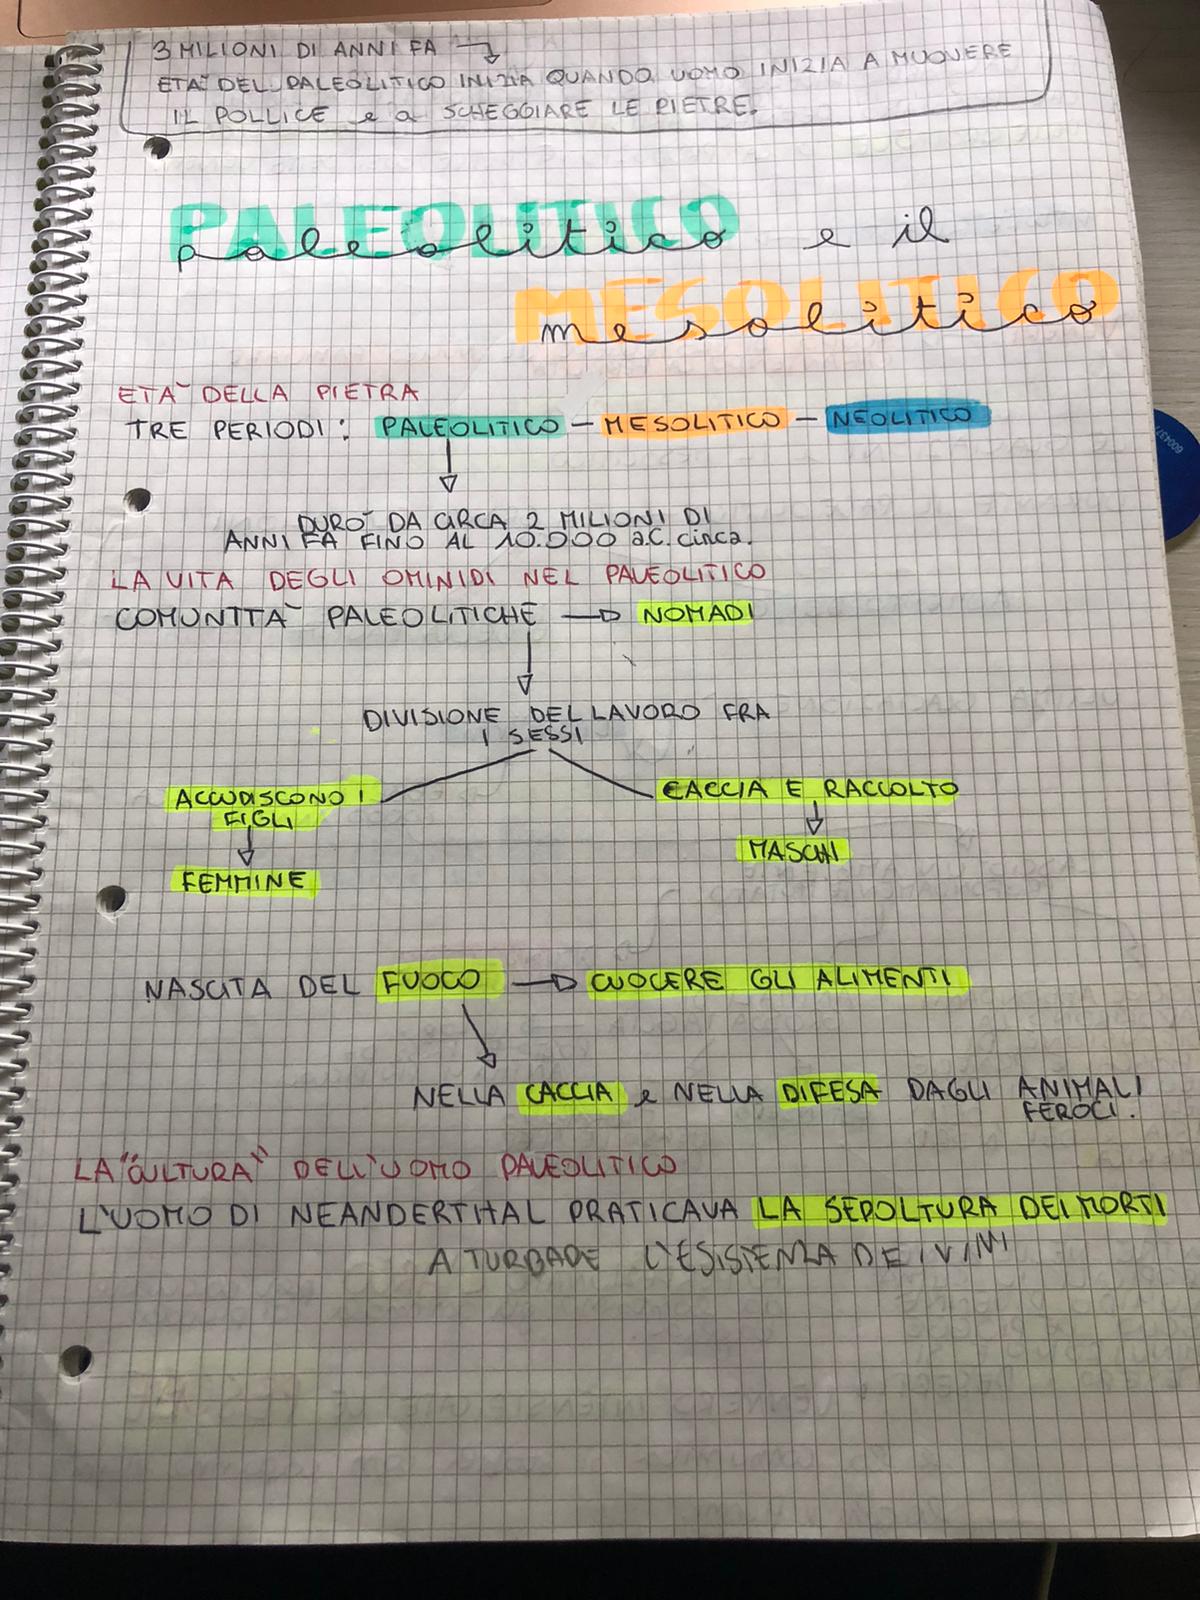 3 MILIONI DI ANNI FA →
ETA' DEL PALEOLITICO INIZIA QUANDO UOMO INIZIA A MUOVERE
IL POLLICE e a SCHEGGIARE LE PIETRE.
PALEOLITICO
paleolitico e il
MESOLITICO
mesolitico
ETA' DELLA PIETRA
TRE PERIODI: PALEOLITICO - MESOLITICO - NEOLITICO
DURO' DA CIRCA 2 MILIONI DI
ANNI FA FINO AL 10.000 a.C. circa.
LA VITA DEGLI OMINIDI NEL PALEOLITICO
COMUNITA' PALEOLITICHE → NOMADI
DIVISIONE DEL LAVORO FRA
I SESSI
ACCUDISCONO I
FIGLI
FEMMINE
CACCIA E RACCOLTO
MASCHI
NASCITA DEL FUOCO → CUOCERE GLI ALIMENTI
NELLA CACCIA e NELLA DIFESA DAGLI ANIMALI
FEROCI.
LA "CULTURA" DELL'UOMO PALEOLITICO
L'UOMO DI NEANDERTHAL PRATICAVA LA SEPOLTURA DEI MORTI
A TURBADE L'ESISTENZA DEI VIVI
6004377